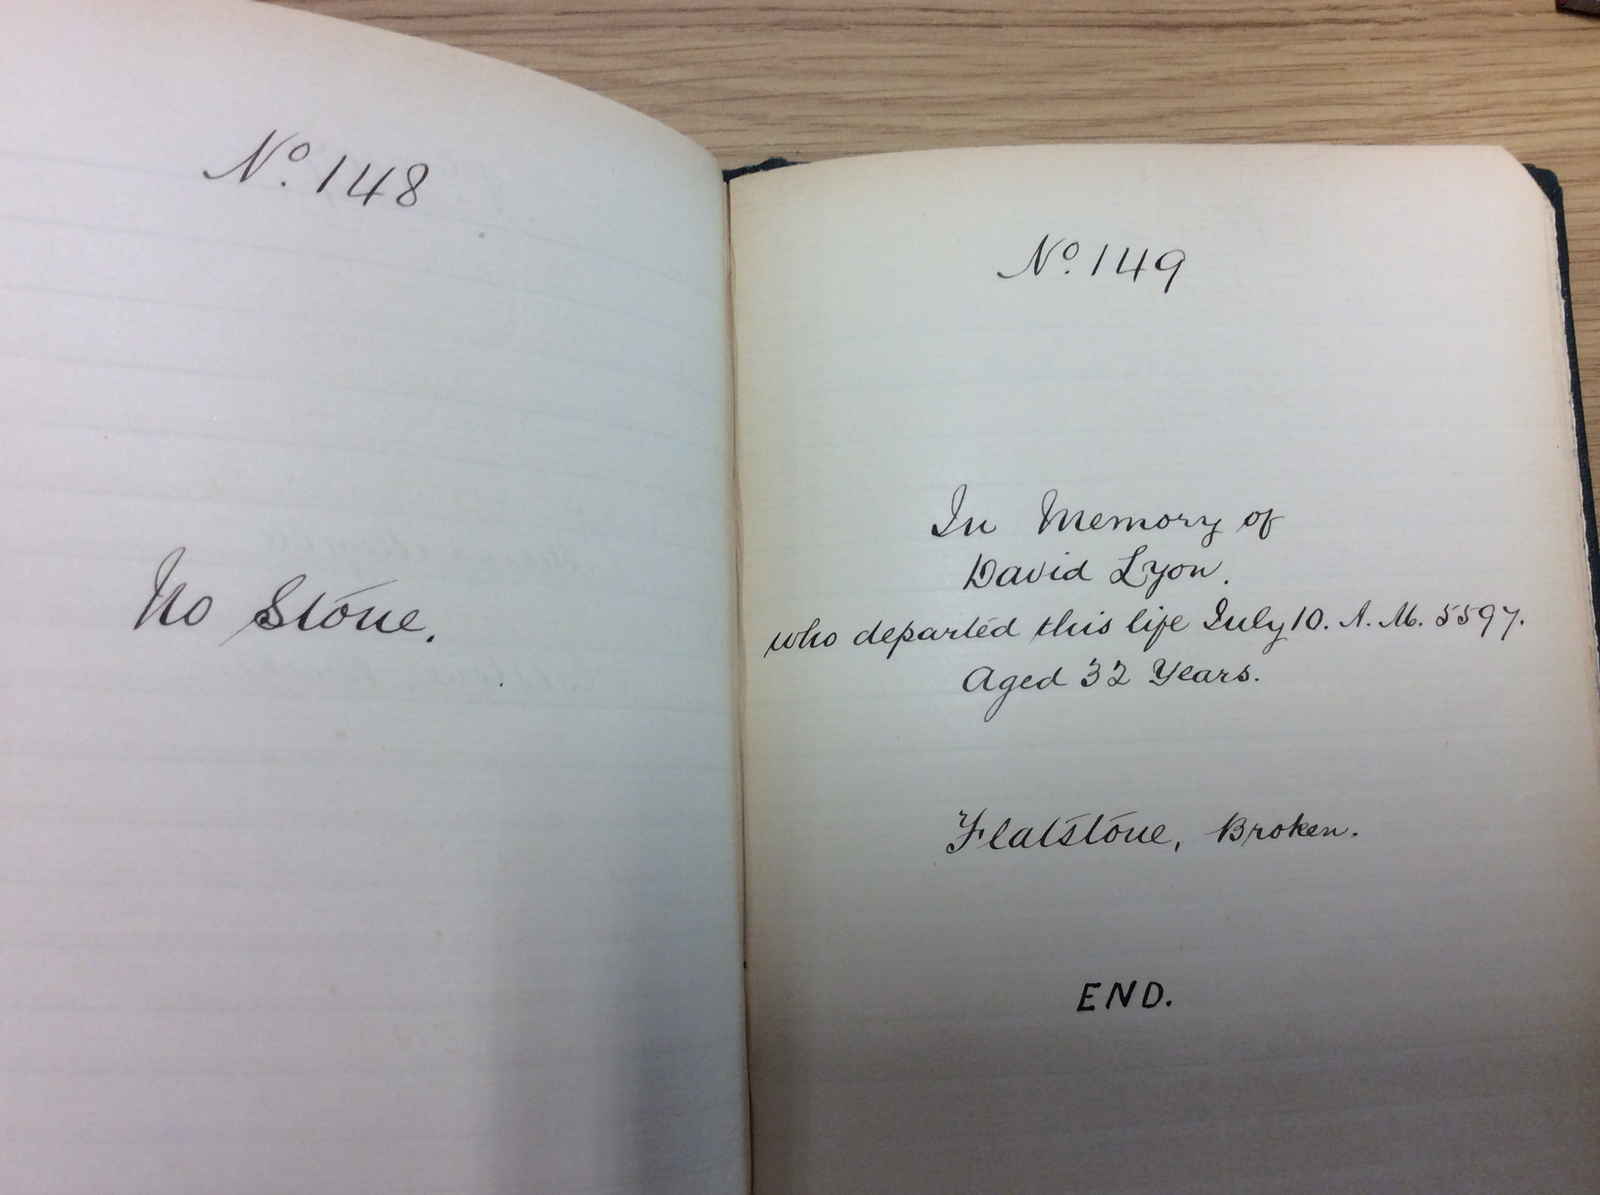 No. 148
No Stone.
No. 149
In Memory of
David Lyon.
who departed this life July 10. A. M. 5597.
Aged 32 Years.
Flatstone, Broken.
END.